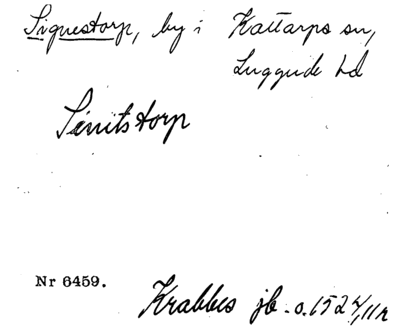 Signestorp, by i Kattarps sn,
Luggude hd
Sénitstorp
Nr 6459.
Krabbes jb. o. 1524/11